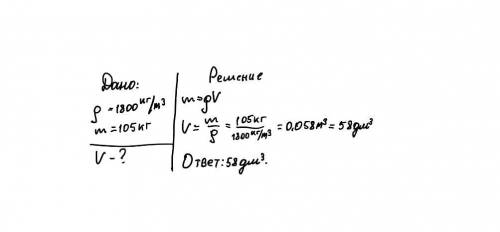 Дано:
ρ = 1800 кг/м³
m = 105 кг
V - ?
Решение
m = ρV
V = m/ρ = 105 кг/1800 кг/м³ = 0,058 м³ = 58 дм³
Ответ: 58 дм³.